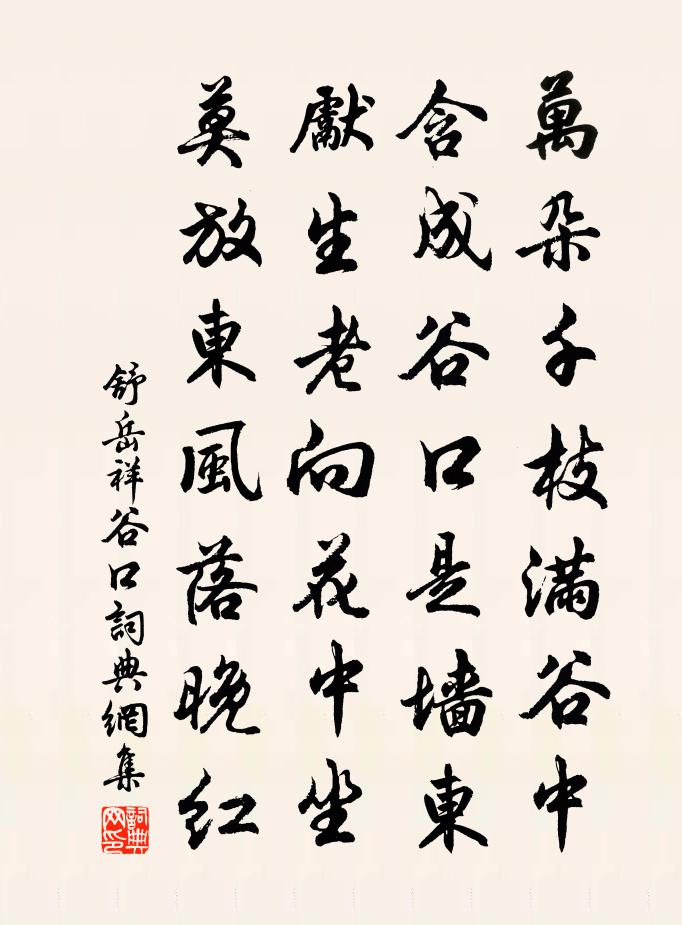 萬朵千枝滿谷中
含成谷口是墙東
獻生老向花中坐
莫放東風落晚紅
舒岳祥谷口詞典網集
詞典网印